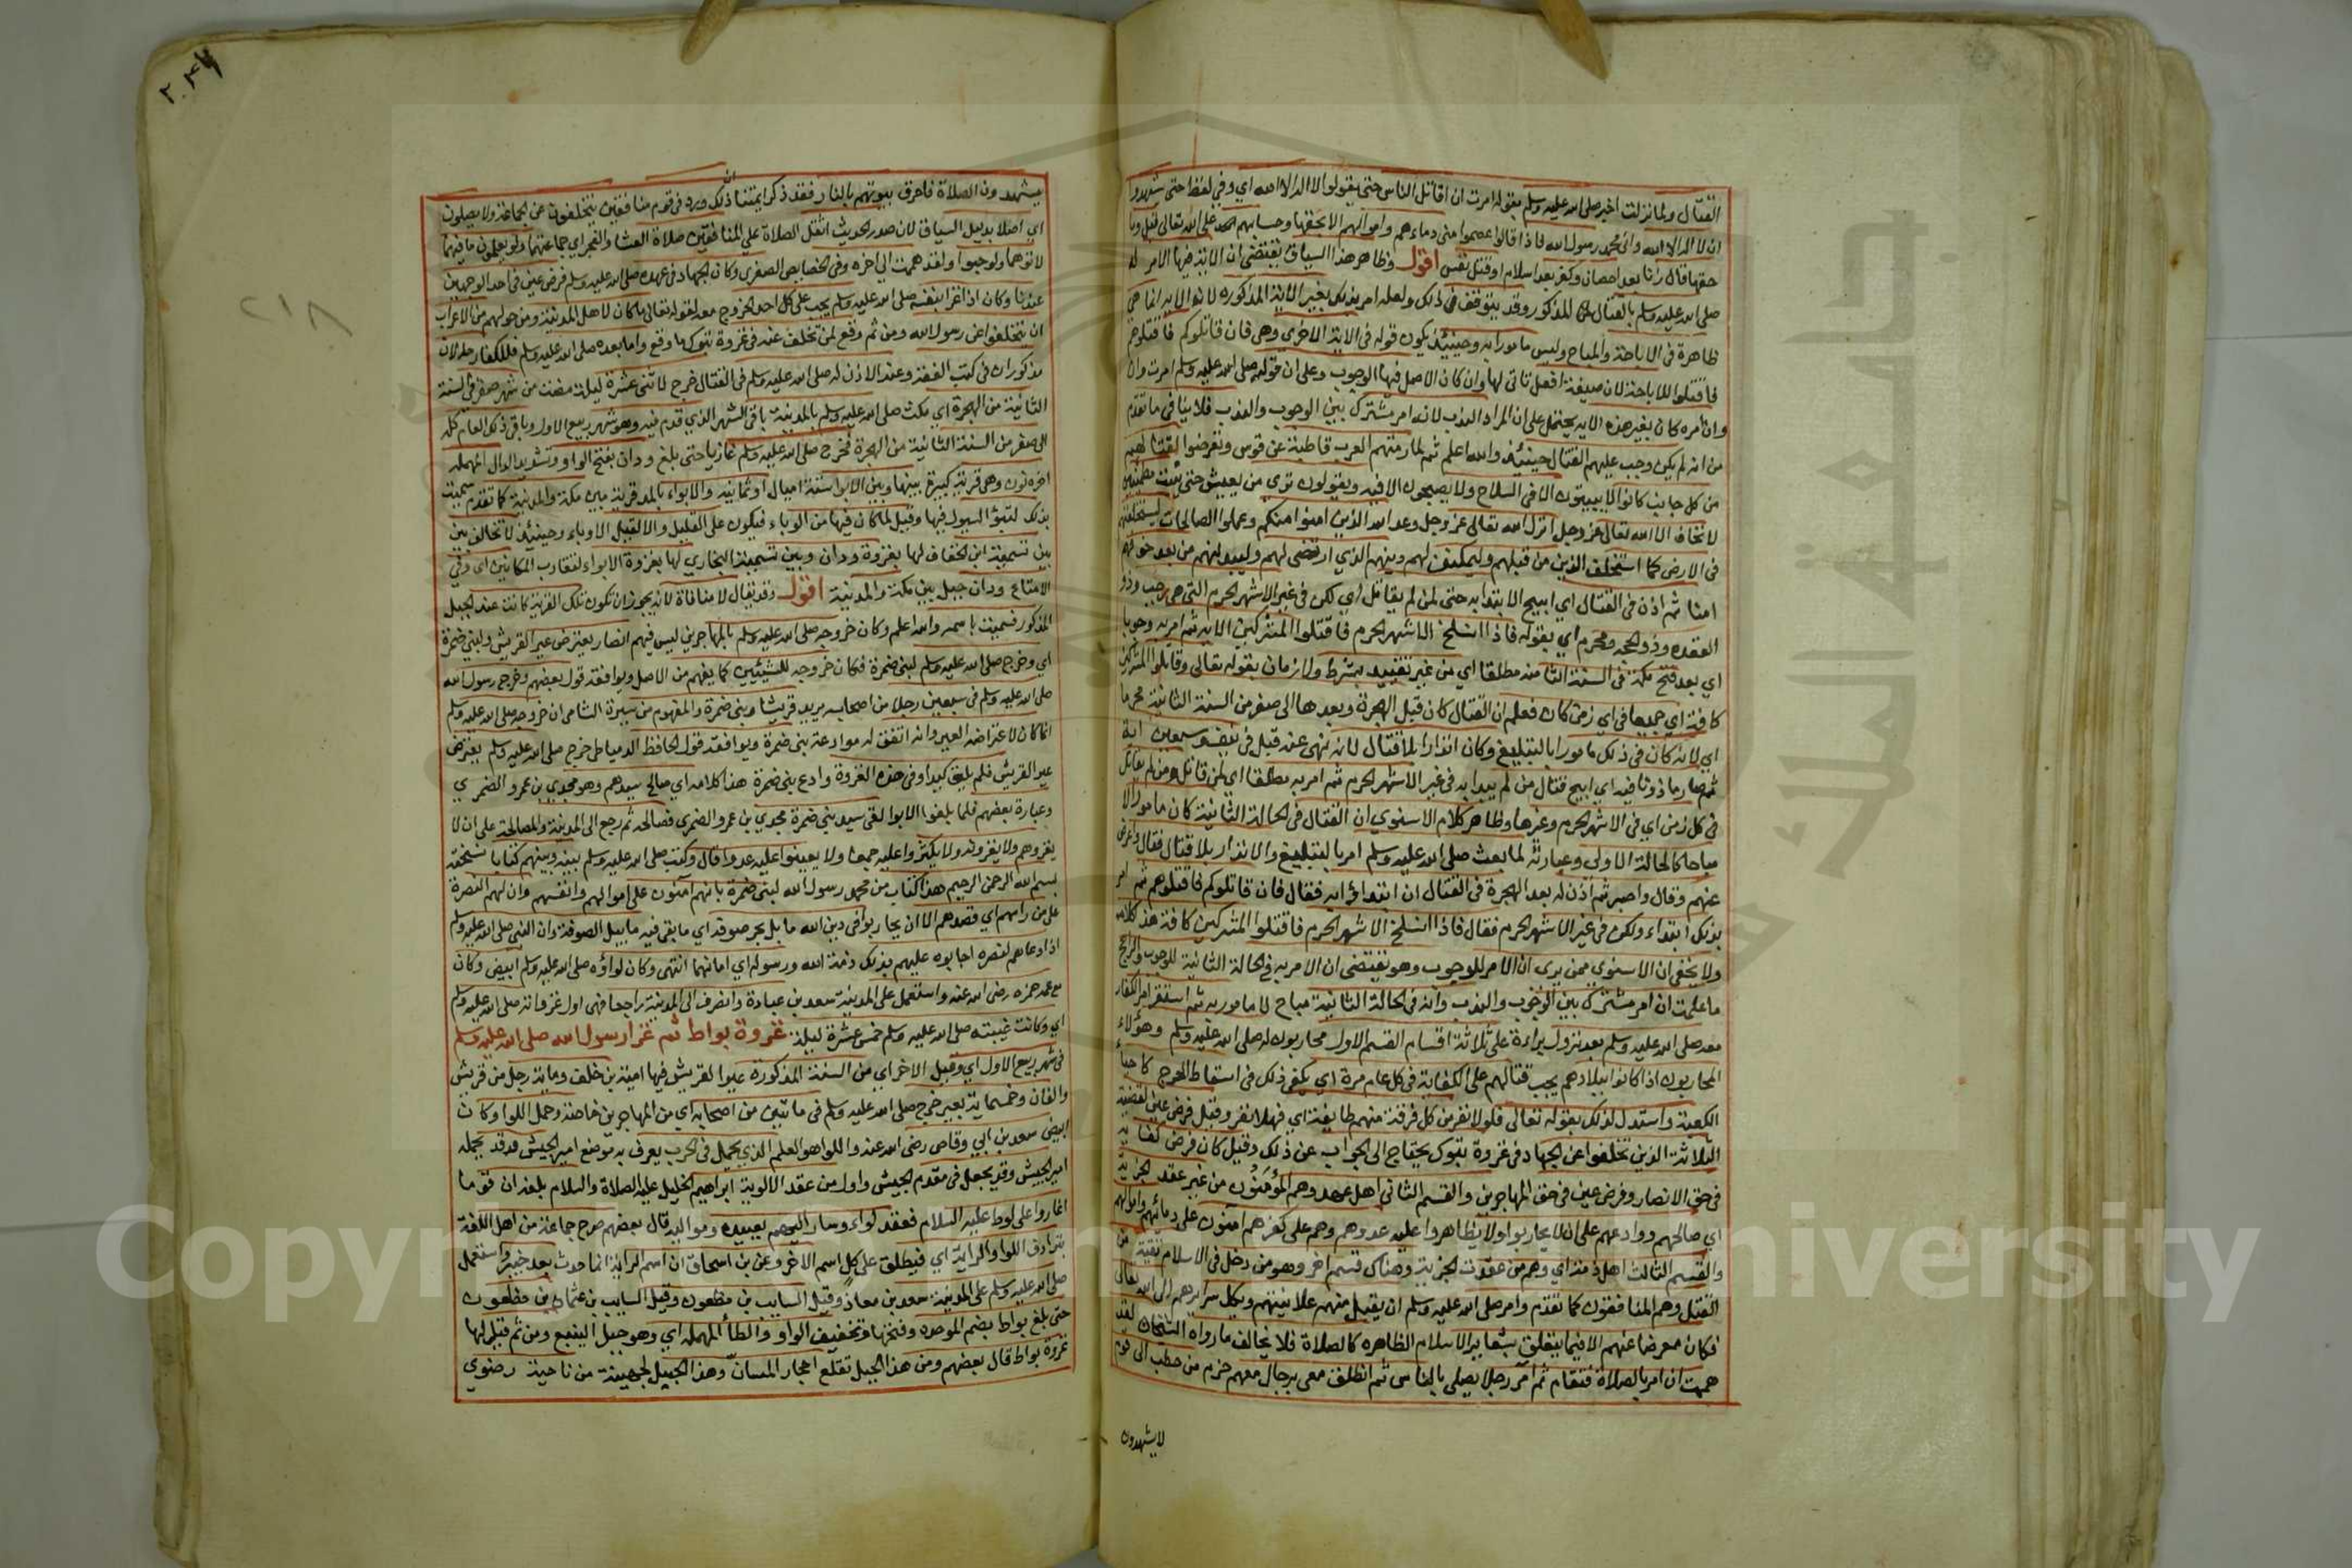 القتال ولما نزلت اخبر صلى الله عليه وسلم بقوله امرت ان اقاتل الناس حتى يقولوا لا اله الا الله اي وفي لفظ حتى يشهدوا
ان لا اله الا الله وان محمد رسول الله فاذا قالوا عصموا مني دماءهم واموالهم الا بحقها وحسابهم على الله تعالى قيل وما
حقها قال زنا بعد احصان وكفر بعد اسلام او قتل نفس اقول وظاهر هذا السياق يقتضي ان الاية فيها الامر له
صلى الله عليه وسلم بالقتال المذكور وقد يتوقف في ذلك ولعله امر بذلك بغير الاية المذكورة لانها الاية انما هي
ظاهرة في الاباحة والمباح وليس مامورا به وحينئذ يكون قوله في الاية الاخري وهي فان قاتلوكم فاقتلوهم
فاقتلوا للاباحة لان صيغة افعل تاتي لها وان كان الاصل فيها الوجوب وعلى ان قوله صلى الله عليه وسلم امرت وان
وان امره كان بغير هذه الاية يحتمل على ان المراد الندب لانه امر مشترك بين الوجوب والندب فلا ينافي ما تقدم
من انه لم يكن وجب عليهم القتال حينئذ والله اعلم ثم لما رمتهم العرب قاطبة عن قوس وتعرضوا لقتالهم
من كل جانب كانوا لا يبيتون الا في السلاح ولا يصبحون الا فيه ويقولون نرى من يعيش حتى يبيت مطمئنين
لا نخاف الا الله تعالى عز وجل انزل الله تعالى عز وجل وعد الله الذين امنوا منكم وعملوا الصالحات ليستخلفنهم
في الارض كما استخلف الذين من قبلهم وليمكنن لهم دينهم الذي ارتضى لهم وليبدلنهم من بعد خوفهم
امنا ثم اذن في القتال اي ابيح الابتدا به حتى لمن لم يقاتل اي لكن في غير الاشهر الحرم التي هي رجب وذو
القعدة وذو الحجه ومحرم اي بقوله فاذا انسلخ الاشهر الحرم فاقتلوا المشركين الاية ثم امر به وجوبا
اي بعد فتح مكة في السنة الثامنة مطلقا اي من غير تقييد بشرط ولا زمان بقوله تعالى وقاتلوا المشركين
كافة اي جميعا في اي زمن كان فعلم ان القتال كان قبل الهجرة وبعدها الى صفر من السنة الثانية محرما
اي لانه كان في ذلك مامورا بالتبليغ وكان انذارا بلا قتال لانه نهى عنه قبل في نيف وسبعين اية
ثم صار ماذونا فيه اي ابيح قتال من لم يبدا به في غير الاشهر الحرم ثم امر به مطلقا اي لمن قاتل ومن لم يقاتل
في كل زمن اي في الاشهر الحرم وغيرها وظاهر كلام الاسنوي ان القتال في الحالة الثانية كان مامورا لا
مباحا كالحالة الاولى وعبارته لما بعث صلى الله عليه وسلم امر بالتبليغ والانذار بلا قتال فقال واعرض
عنهم وقال واصبر ثم اذن له بعد الهجرة في القتال ان ابتدؤا به فقال فان قاتلوكم فاقتلوهم ثم امر
بذلك ابتداء ولكن في غير الاشهر الحرم فقال فاذا انسلخ الاشهر الحرم فاقتلوا المشركين كافة هذا كلامه
ولا يخفى ان الاسنوي ممن يرى ان الامر للوجوب وهو يقتضي ان الامر به في الحالة الثانية للوجوب والراجح
ما علمت ان امر مشترك بين الوجوب والندب وانه في الحالة الثانية مباح لا مامور به ثم استقر امر الكفار
معه صلى الله عليه وسلم بعد نزول براءة على ثلاثة اقسام القسم الاول محاربون له صلى الله عليه وسلم وهؤلاء
المحاربون اذا كانوا ببلادهم يجب قتالهم على الكفاية في كل عام مرة اي يكفي ذلك في اسقاط الحرج كاحياء
الكعبة واستدل لذلك بقوله تعالى فلولا نفر من كل فرقة منهم طايفة اي فهلا نفر وقيل فرض عين لقضية
الثلاثة الذين تخلفوا عن الجهاد في غزوة تبوك يحتاج الى الجواب عن ذلك وقيل كان فرض كفاية
في حق الانصار وفرض عين في حق المهاجرين والقسم الثاني اهل عهد وهم المؤمنون من غير عقد الجزية
اي صالحهم ووادعهم على ان لا يحاربوا ولا يظاهروا عليه عدوهم وهم على كفرهم امنون على دمائهم واموالهم
والقسم الثالث اهل ذمة اي وهم من عقدت لهم جزية وهناك قسم اخر وهو من دخل في الاسلام تقية من
القتل وهم المنافقون كما تقدم وامر صلى الله عليه وسلم ان يقبل منهم علانيتهم ويكل سرايرهم الى الله تعالى
فكان معرضا عنهم الا فيما يتعلق بشعاير الاسلام الظاهره كالصلاة فلا يخالف ما رواه الشيخان لقد
هممت ان امر بالصلاة فتقام ثم آمر رجلا يصلي بالناس ثم انطلق معي برجال معهم حزم من حطب الى قوم
لا يشهدون
يشهدون الصلاة فاحرق بيوتهم بالنار فقد ذكر ايمتنا ان ذلك ورد في قوم منافقين يتخلفون عن الجماعة ولا يصلون
اي اصلا بدليل السياق لان صدر الحديث اثقل الصلاة على المنافقين صلاة العشا والفجر اي جماعتهما ولو يعلمون ما فيهما
لاتوهما ولو حبوا ولقد هممت الى اخره وفي الخصايص الصغرى وكان الجهاد في عهده صلى الله عليه وسلم فرض عين في احد الوجهين
عندنا وكان اذا غزا بنفسه صلى الله عليه وسلم يجب على كل احد الخروج معه لقوله تعالى ما كان لاهل المدينة ومن حولهم من الاعراب
ان يتخلفوا عن رسول الله ومن ثم وقع لمن تخلف عنه في غزوة تبوك ما وقع واما بعده صلى الله عليه وسلم فللكفار حالان
مذكوران في كتب الفقه وعند الاذن له صلى الله عليه وسلم في القتال خرج لاثنى عشرة ليلة مضت من شهر صفر في السنة
الثانية من الهجرة اي مكث صلى الله عليه وسلم بالمدينة باقي الشهر الذي قدم فيه وهو شهر ربيع الاول وباقي ذلك العام كله
الى صفر من السنة الثانية من الهجرة فخرج صلى الله عليه وسلم غازيا حتى بلغ ودان بفتح الواو وتشديد الدال المهمله
اخره نون وهي قرية كبيرة بينها وبين الابوا ستة اميال او ثمانية والابواء بالمد قرية بين مكة والمدينة كما تقدم سميت
بذلك لتبوؤ السيول فيها وقيل لما كان فيها من الوباء فيكون على القلب والا لقيل الاوباء وحينئذ لا تخالف بين
بين تسمية ابن الحفاف لها بغزوة ودان وبين تسمية البخاري لها بغزوة الابواء لتقارب المكانين اي وفي
الامتاع ودان جبل بين مكة والمدينة اقول وقد يقال لا منافاة لانه يجوز ان تكون تلك القرية كانت عند الجبل
المذكور فسميت باسمه والله اعلم وكان خروجه صلى الله عليه وسلم بالمهاجرين ليس فيهم انصار يعترض عير القريش ولبني ضمرة
اي وخرج صلى الله عليه وسلم لبني ضمرة فكان خروجه للشيئين كما يفهم من الاصل ويوافقه قول بعضهم وخرج رسول الله
صلى الله عليه وسلم في سبعين رجلا من اصحابه يريد قريشا وبني ضمرة والمفهوم من سيرة الشامى ان خروجه صلى الله عليه وسلم
انما كان لاعتراضه العير وانه اتفق له موادعة بني ضمرة ويوافقه قول الحافظ الدمياطى خرج صلى الله عليه وسلم يعترض
عير القريش فلم يلق كيدا وفي هذه الغزوة وادع بني ضمرة هذا كلامه اي صالح سيدهم وهو مجدي بن عمرو الضمري
وعبارة بعضهم فلما بلغوا الابوا لقى سيد بني ضمرة مجدي بن عمرو الضمري فصالحه ثم رجع الى المدينة والمصالحة على ان لا
يغزوهم ولا يغزونه ولا يكثروا عليه جمعا ولا يعينوا عليه عدوا قال وكتب صلى الله عليه وسلم بينه وبينهم كتابا نسخته
بسم الله الرحمن الرحيم هذا كتاب من محمد رسول الله لبنى ضمرة بانهم آمنون على اموالهم وانفسهم وان لهم النصرة
على من رامهم اي قصدهم الا ان يحاربوا في دين الله ما بل بحر صوفة اي ما بقى فيه ما يبل الصوفة وان النبي صلى الله عليه وسلم
اذا دعاهم لنصره اجابوه عليهم بذلك ذمة الله ورسوله اي امانهما انتهى وكان لواؤه صلى الله عليه وسلم ابيض وكان
مع عمه حمزه رضى الله عنه واستعمل على المدينة سعد بن عبادة وانصرف الى المدينة راجعا فهى اول غزواته صلى الله عليه وسلم
اي وكانت غيبته صلى الله عليه وسلم خمس عشرة ليلة: غزوة بواط ثم غزا رسول الله صلى الله عليه وسلم
في شهر ربيع الاول اي وقيل الاخر اي من السنة المذكورة عيرا لقريش فيها امية بن خلف ومائة رجل من قريش
والفان وخمسماية بعير خرج صلى الله عليه وسلم في مائتين من اصحابه اي من المهاجرين خاصة وحمل اللوا وكان
ابيض سعد بن ابي وقاص رضى الله عنه واللوا هو العلم الذي يحمل في الحرب يعرف به موضع امير الجيش قد يحمله
امير الجيش وقد يجعل في مقدم الجيش واول من عقد الالوية ابراهيم الخليل عليه الصلاة والسلام بلغه ان قوما
اغاروا على لوط عليه السلام فعقد لواء وسار اليهم بعبيده ومواليه قال بعضهم صرح جماعة من اهل اللغة
بترادف اللوا والراية اي فيطلق على كل اسم الاخر وعن ابن اسحاق ان اسم الراية انما حدث بعد خيبر واستعمل
صلى الله عليه وسلم على المدينة سعد بن معاذ وقيل السايب بن مظعون وقيل السايب بن عثمان بن مظعون
حتى بلغ بواط بضم الموحدة وفتحها وتخفيف الواو والطاء المهمله اي وهو جبل الينبع ومن ثم قيل لها
غزوة بواط قال بعضهم ومن هذا الجبل تقلع احجار المسان وهذا الجبل لجهينة من ناحية رضوي
٢١٨
Copyright © King Saud University
جامعة الملك سعود